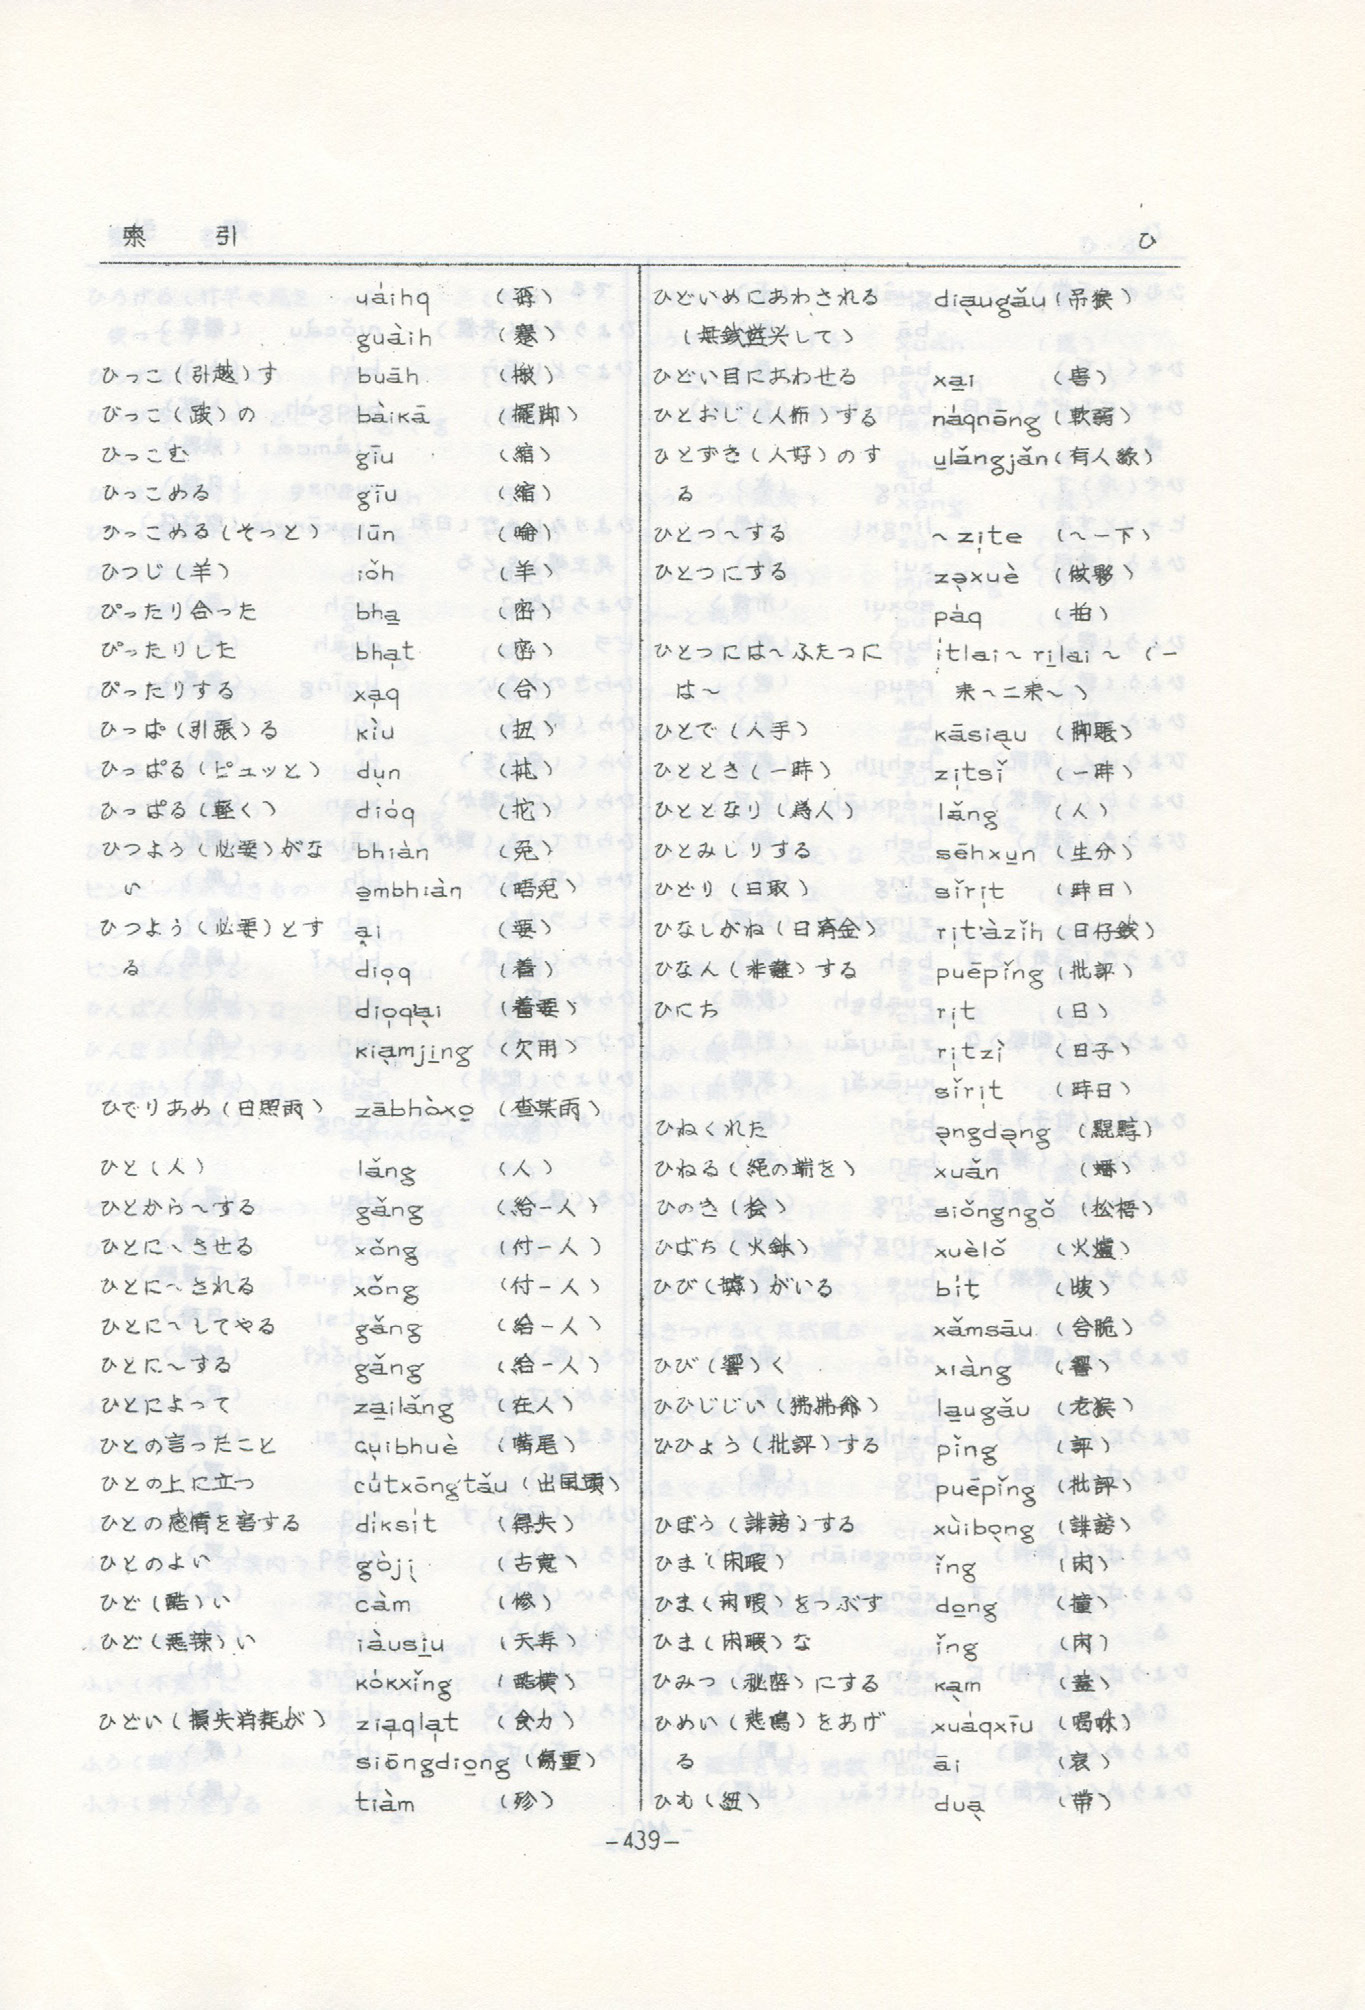 索 引 ひ
uáihq (孬)
guàih (蹇)
ひっこ(引越)す buāh (搬)
びっこ(跛)の bàikā (擺脚)
ひっこむ gīu (縮)
ひっこめる gīu (縮)
ひっこめる(そっと) lūn
ひつじ(羊) iǒh (羊)
ぴったり合った bha̱ (密)
ぴったりした bhạt (密)
ぴったりする xạq (合)
ひっぱ(引張)る kìu (扭)
ひっぱる(ピュッと) dụn
ひっぱる(軽く) dióq
ひつよう(必要)がな bhiàn (免)
い a̱mbhiàn (唔免)
ひつよう(必要)とす ại (要)
る diọq (着)
diọqại (着要)
kiạmji̱ng (欠用)
ひでりあめ(日照雨) zābhòxo̱ (査某雨)
ひと(人) lǎng (人)
ひとから〜する gǎng (給一人)
ひとに〜させる xǒng (付一人)
ひとに〜される xǒng (付一人)
ひとに〜してやる gǎng (給一人)
ひとに〜する gǎng (給一人)
ひとによって za̱ilǎng (在人)
ひとの言ったこと cụibhuè (嘴尾)
ひとの上に立つ cútxōngtǎu (出国頭)
ひとの感情を害する díksít (得失)
ひとのよい gòjị (古意)
ひど(酷)い càm (惨)
ひど(悪辣)い iàusi̱u (夭寿)
kókxǐng (酷横)
ひどい(損失消耗が) ziạqlạt (食力)
siōngdio̱ng (傷重)
tiàm (殄)
ひどいめにあわされる diạugǎu (吊猴)
(無銭遊興して)
ひどい目にあわせる xa̱i (害)
ひとおじ(人怖)する náqnōng (軟弱)
ひとずき(人好)のす u̱lǎngjǎn (有人緣)
る
ひとつ〜する 〜zịte (〜一下)
ひとつにする zạxuè (做夥)
páq (拍)
ひとつには〜ふたつに ítlai〜ri̱lai〜 (一
は〜 来〜二来〜)
ひとで(人手) kāsiạu (脚賬)
ひととき(一時) zịtsǐ (一時)
ひととなり(為人) lǎng (人)
ひとみしりする sēhxu̱n (生分)
ひどり(日取) sǐrịt (時日)
ひなしがね(日済金) rịt'àzǐh (日仔銭)
ひなん(非難)する puēpǐng (批評)
ひにち rịt (日)
rịtzì (日子)
sǐrịt (時日)
ひねくれた ạngdạng
ひねる(縄の端を) xuǎn
ひのき(桧) siǒngngǒ (松梧)
ひばち(火鉢) xuèlǒ (火爐)
ひび(罅)がいる bít
xǎmsāu
ひび(響)く xiàng (響)
ひひじじい(狒狒爺) la̱ugǎu (老猴)
ひひょう(批評)する pǐng (評)
puēpǐng (批評)
ひぼう(誹謗)する xùibọng (誹謗)
ひま(閑暇) ǐng (閑)
ひま(閑暇)をつぶす do̱ng (撞)
ひま(閑暇)な ǐng (閑)
ひみつ(秘密)にする kạm (蓋)
ひめい(悲鳴)をあげ xuáqxīu (喝咻)
る āi (哀)
ひむ(紐) duạ (帶)
-439-